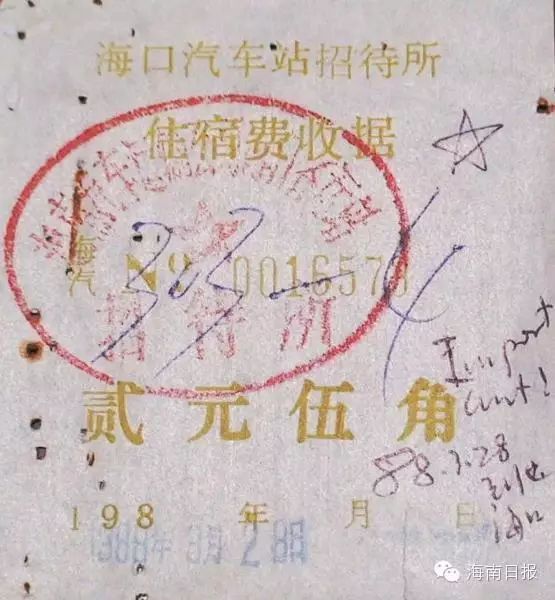 海口汽车站招待所
住宿费收据
海汽 № 001657
303-4
招待所
Import
ant!
贰元伍角
88.3.28
到达
海口
198 年 月 日
1988年3月28日
海南日报